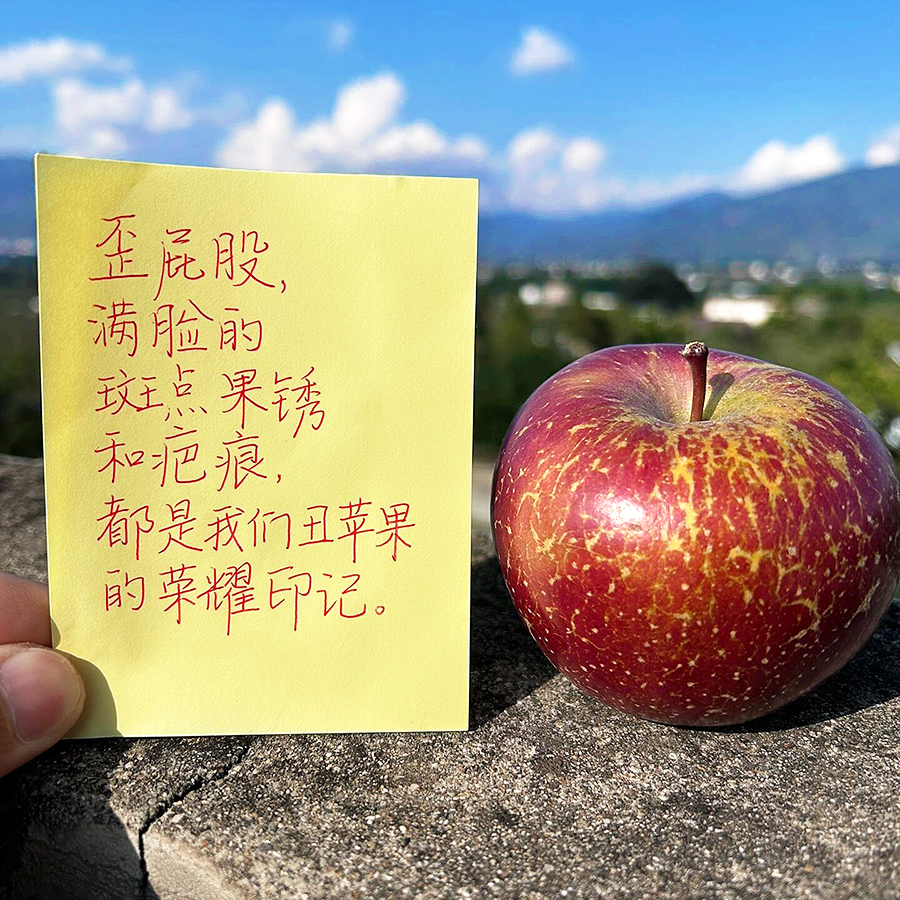 歪屁股，
满脸的
斑点果锈
和疤痕，
都是我们丑苹果
的荣耀印记。